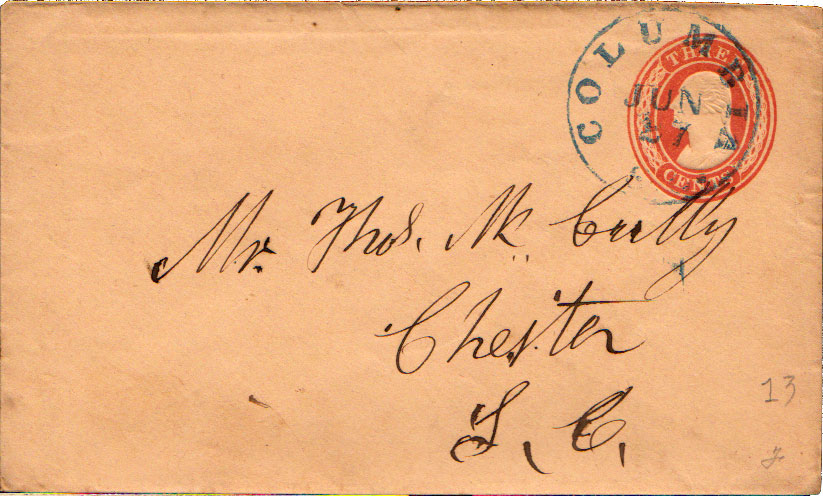 COLUMBIA
THREE
JUN
27
CENTS
Mr. Thos. McCully
Chester
S. C.
13